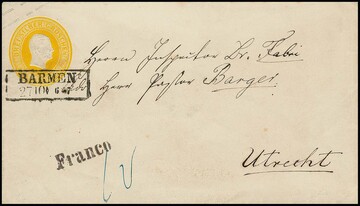 BARMEN
27 10 6-7
Herrn Inspector Dr. Fabri
Herr Pastor Barger
Franco
Utrecht